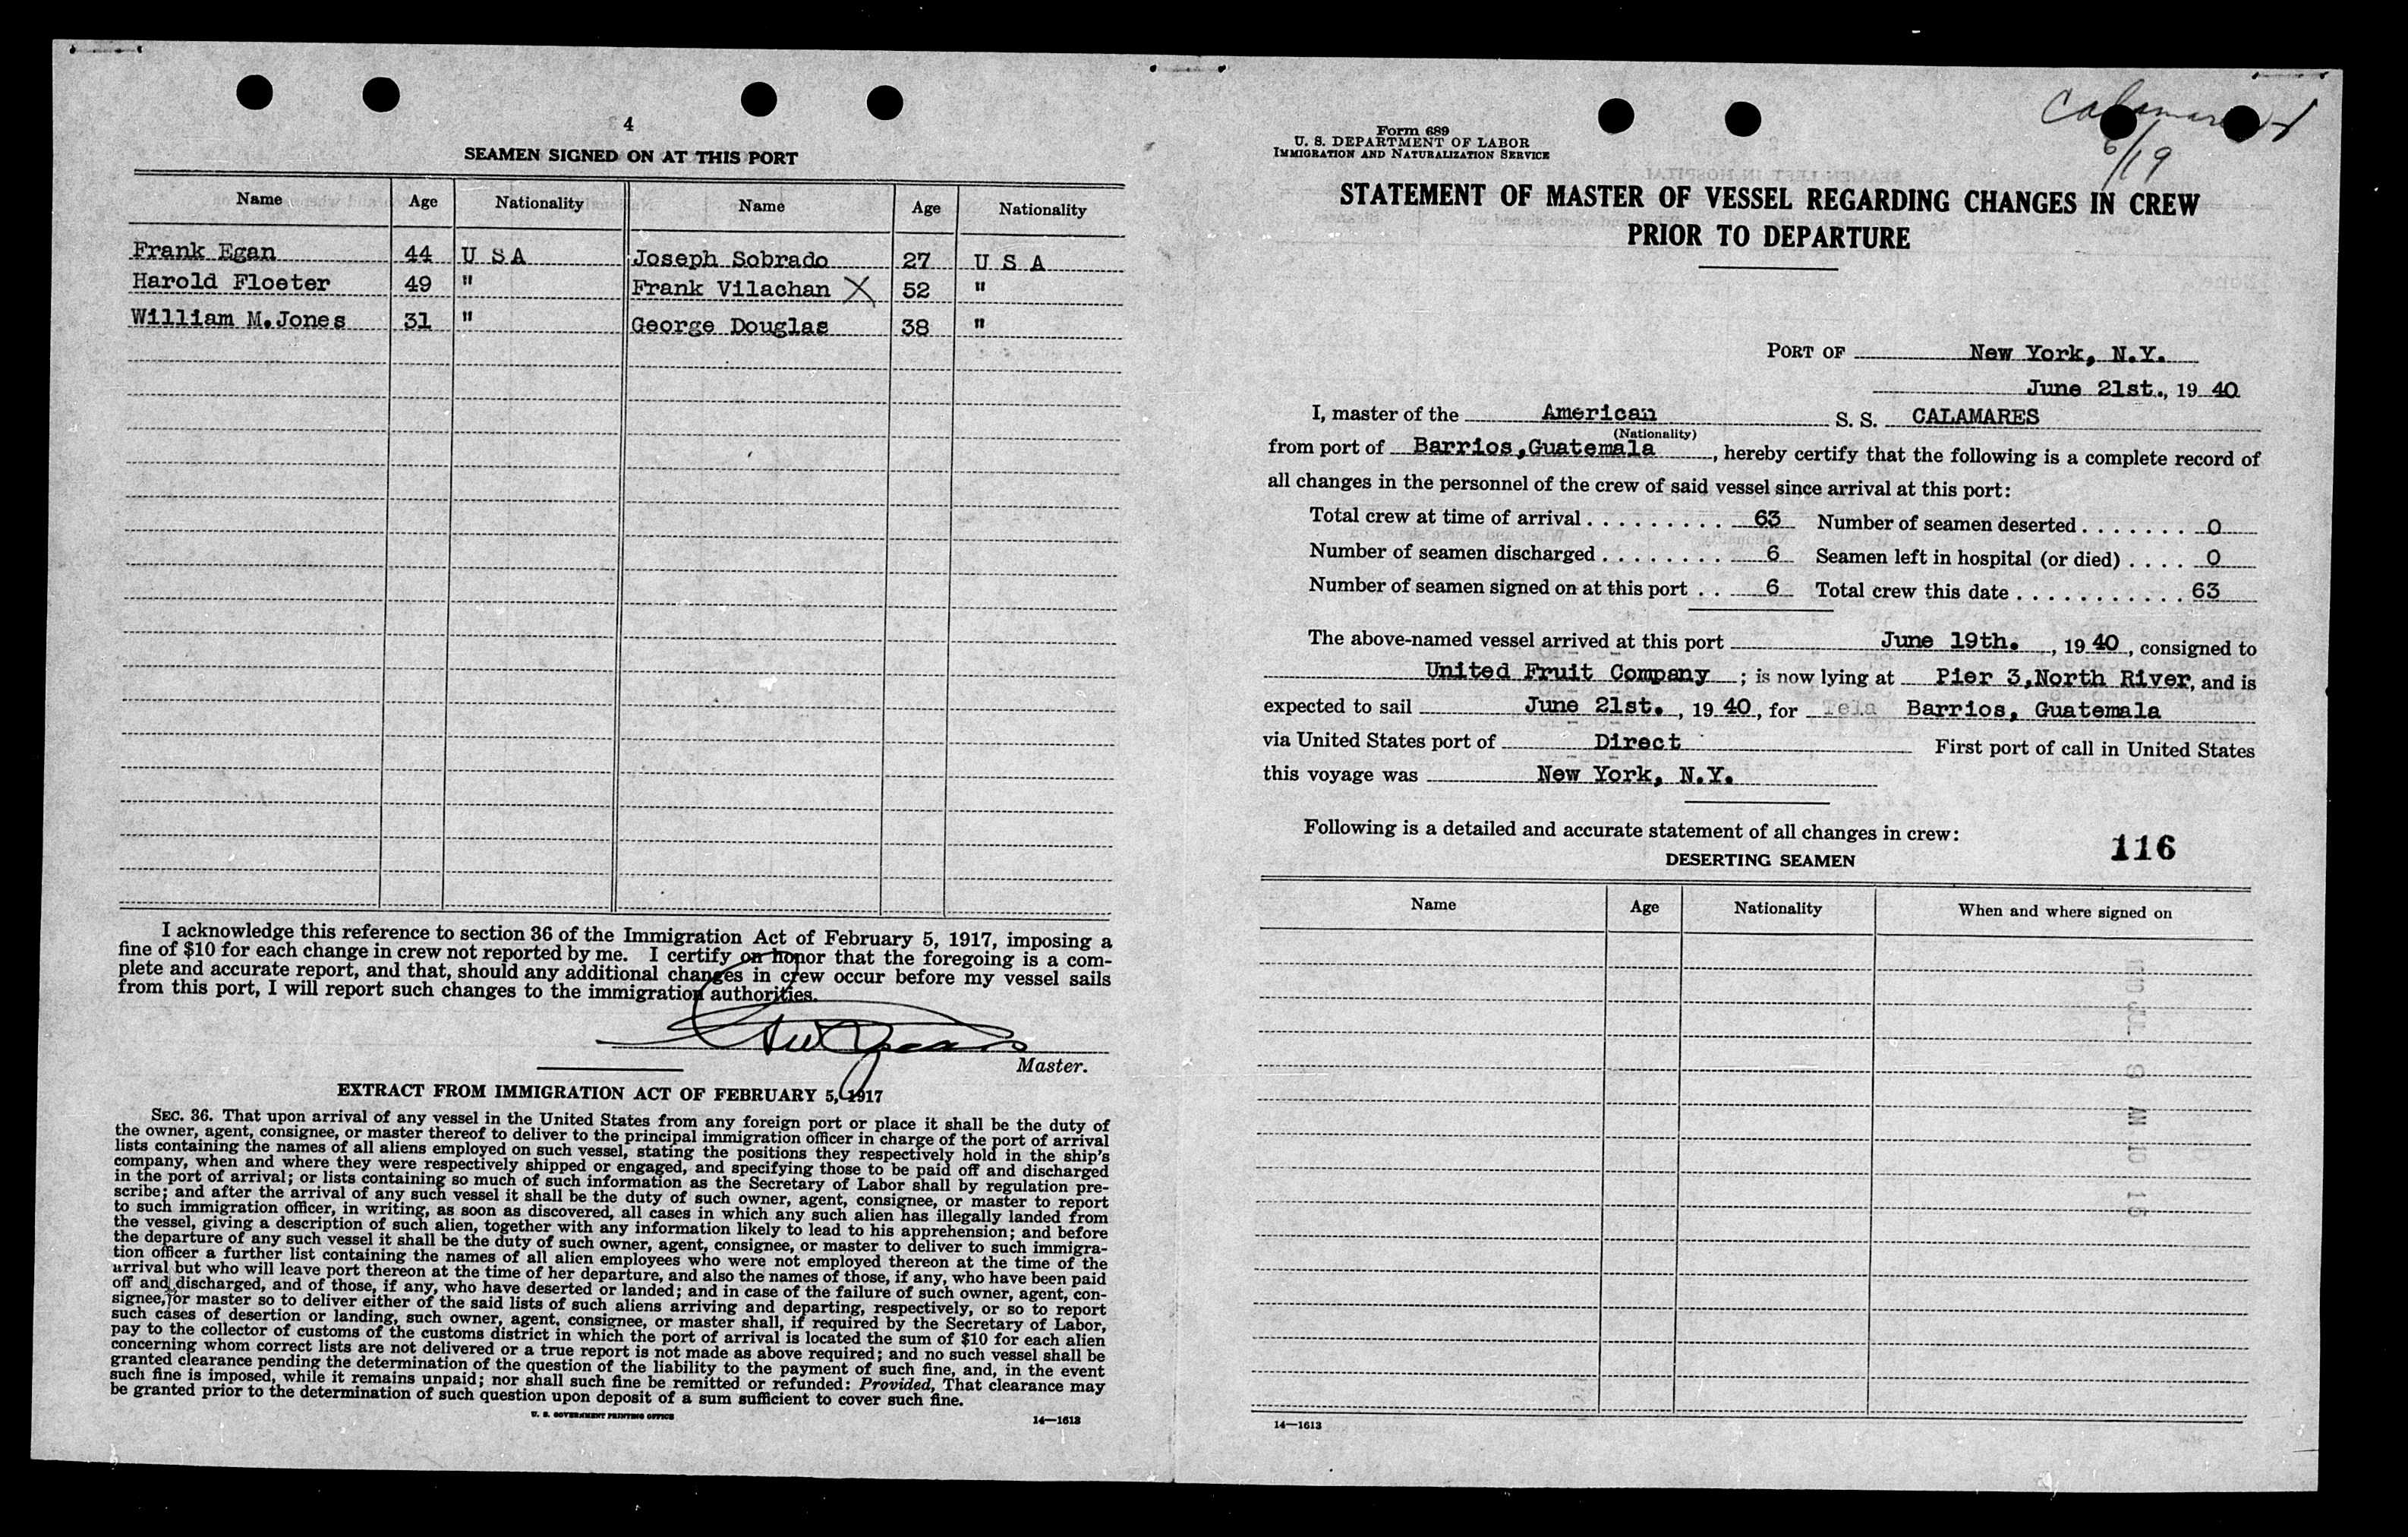 4
SEAMEN SIGNED ON AT THIS PORT
Name Age Nationality Name Age Nationality
Frank Egan 44 U S A Joseph Sobrado 27 U S A
Harold Floeter 49 " Frank Vilachan X 52 "
William M.Jones 31 " George Douglas 38 "
I acknowledge this reference to section 36 of the Immigration Act of February 5, 1917, imposing a
fine of $10 for each change in crew not reported by me. I certify on honor that the foregoing is a com-
plete and accurate report, and that, should any additional changes in crew occur before my vessel sails
from this port, I will report such changes to the immigration authorities.
Master.
EXTRACT FROM IMMIGRATION ACT OF FEBRUARY 5, 1917
SEC. 36. That upon arrival of any vessel in the United States from any foreign port or place it shall be the duty of
the owner, agent, consignee, or master thereof to deliver to the principal immigration officer in charge of the port of arrival
lists containing the names of all aliens employed on such vessel, stating the positions they respectively hold in the ship's
company, when and where they were respectively shipped or engaged, and specifying those to be paid off and discharged
in the port of arrival; or lists containing so much of such information as the Secretary of Labor shall by regulation pre-
scribe; and after the arrival of any such vessel it shall be the duty of such owner, agent, consignee, or master to report
to such immigration officer, in writing, as soon as discovered, all cases in which any such alien has illegally landed from
the vessel, giving a description of such alien, together with any information likely to lead to his apprehension; and before
the departure of any such vessel it shall be the duty of such owner, agent, consignee, or master to deliver to such immigra-
tion officer a further list containing the names of all alien employees who were not employed thereon at the time of the
arrival but who will leave port thereon at the time of her departure, and also the names of those, if any, who have been paid
off and discharged, and of those, if any, who have deserted or landed; and in case of the failure of such owner, agent, con-
signee, or master so to deliver either of the said lists of such aliens arriving and departing, respectively, or so to report
such cases of desertion or landing, such owner, agent, consignee, or master shall, if required by the Secretary of Labor,
pay to the collector of customs of the customs district in which the port of arrival is located the sum of $10 for each alien
concerning whom correct lists are not delivered or a true report is not made as above required; and no such vessel shall be
granted clearance pending the determination of the question of the liability to the payment of such fine, and, in the event
such fine is imposed, while it remains unpaid; nor shall such fine be remitted or refunded: Provided, That clearance may
be granted prior to the determination of such question upon deposit of a sum sufficient to cover such fine.
U. S. GOVERNMENT PRINTING OFFICE 14—1613
Calamares
6/19
Form 689
U. S. DEPARTMENT OF LABOR
IMMIGRATION AND NATURALIZATION SERVICE
STATEMENT OF MASTER OF VESSEL REGARDING CHANGES IN CREW
PRIOR TO DEPARTURE
PORT OF New York, N.Y.
June 21st., 19 40
I, master of the American S. S. CALAMARES
(Nationality)
from port of Barrios,Guatemala, hereby certify that the following is a complete record of
all changes in the personnel of the crew of said vessel since arrival at this port:
Total crew at time of arrival . . . . . . . . . 63 Number of seamen deserted . . . . . . . 0
Number of seamen discharged . . . . . . . . 6 Seamen left in hospital (or died) . . . . 0
Number of seamen signed on at this port . . 6 Total crew this date . . . . . . . . . . . 63
The above-named vessel arrived at this port June 19th., 19 40, consigned to
United Fruit Company; is now lying at Pier 3,North River, and is
expected to sail June 21st., 19 40, for Tela Barrios, Guatemala
via United States port of Direct First port of call in United States
this voyage was New York, N.Y.
Following is a detailed and accurate statement of all changes in crew:
116
DESERTING SEAMEN
Name Age Nationality When and where signed on
14—1613